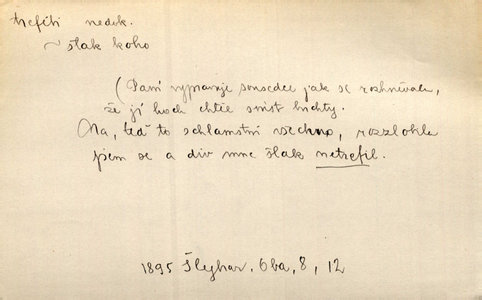 trefiti nedok.
~ šlak koho
(Paní vypravuje sousedce jak se rozhněvala,
že jí hoch chtěl sníst buchty.
Na, teď to schlamstni všechno, rozzlobila
jsem se a div mne šlak netrefil.
1895 Šlejhar, Oba, 8, 12